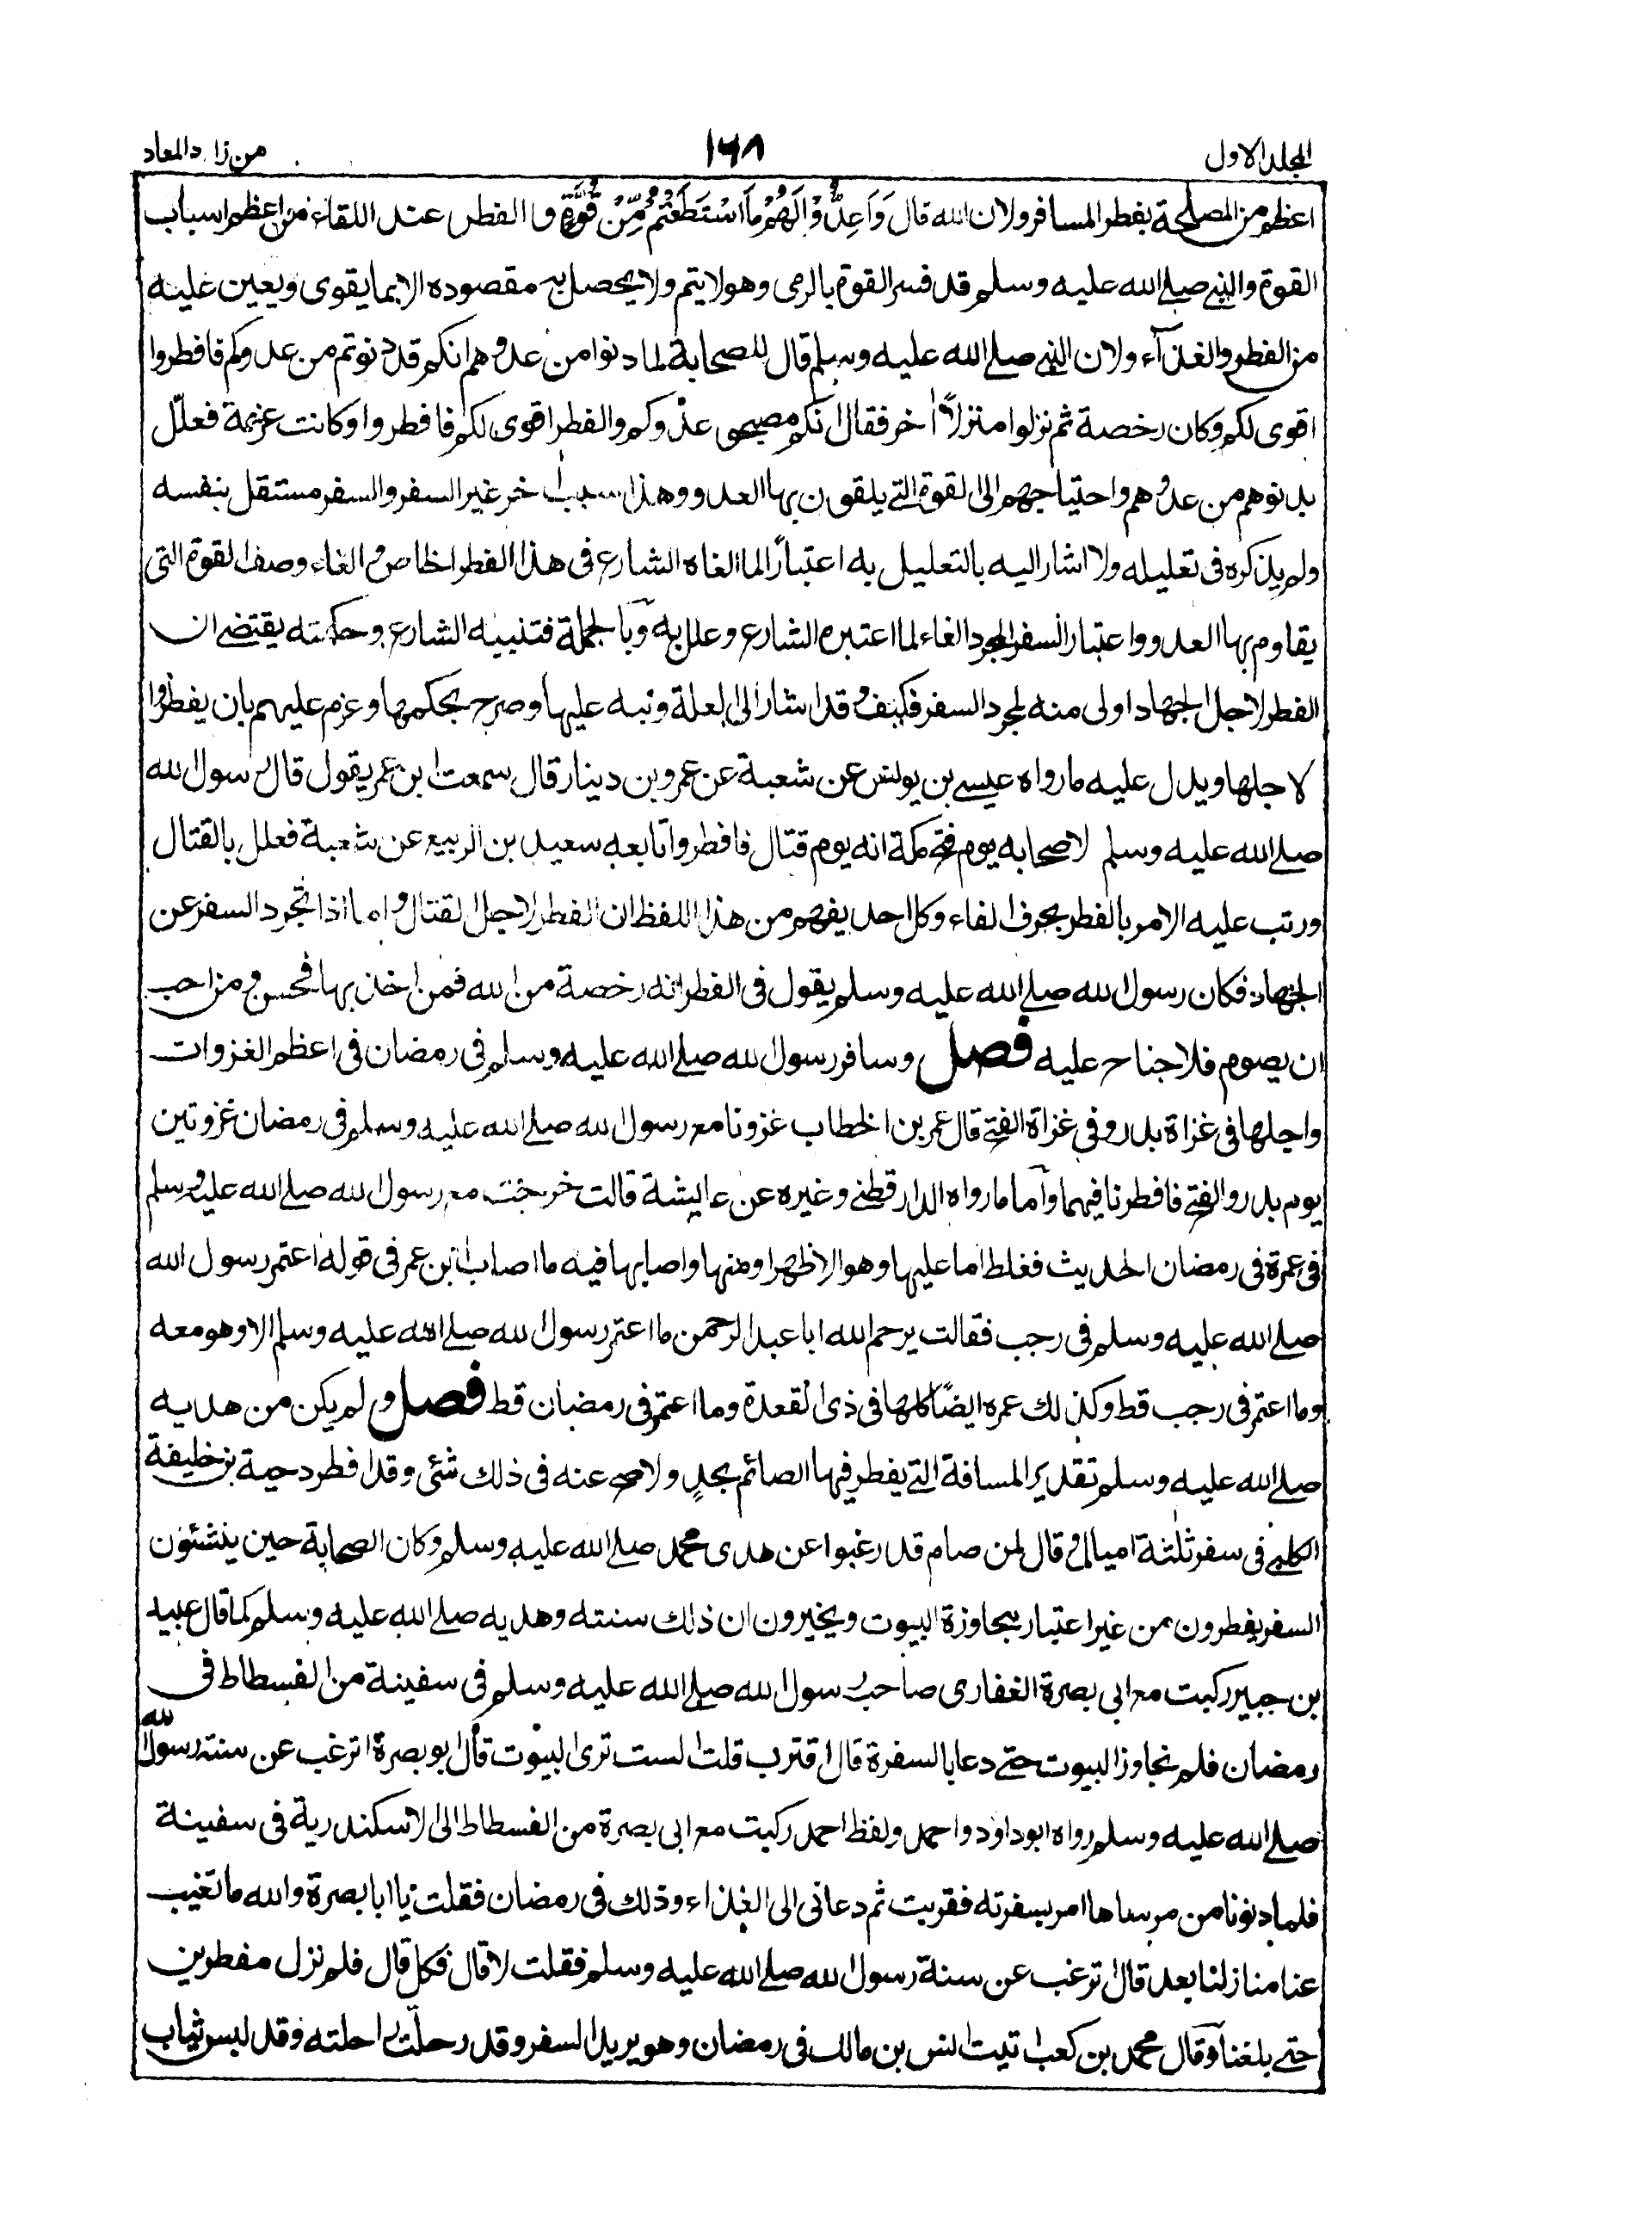 المجلد الاول
١٦٨
من زاد المعاد
اعظم من المصلحة بفطر المسافر ولان الله قال وَاَعِدُّوْا لَهُمْ مَا اسْتَطَعْتُمْ مِّنْ قُوَّةٍ والفطر عند اللقاء من اعظم اسباب
القوة والنبي صلے الله عليه وسلم قد فسر القوة بالرمى وهو لا يتم ولا يحصل به مقصوده الا بما يقوى ويعين عليه
من الفطر والغذآء ولان النبي صلے الله عليه وسلم قال للصحابة لما دنوا من عدوهم انكم قد دنوتم من عدوكم فافطروا
اقوى لكم وكان رخصة ثم نزلوا منزلاً اخر فقال انكم مصبحى عدوكم والفطر اقوى لكم فافطروا وكانت عزيمة فعلّل
بدنوهم من عدوهم واحتياجهم الى القوة التے يلقون بها العدو وهذا سبب اخر غير السفر والسفر مستقل بنفسه
ولم يذكره فى تعليله ولا اشار اليه بالتعليل به اعتباراً لما الغاه الشارع فى هذا الفطر الخاص والغاء وصف القوة التى
يقاوم بها العدو واعتبار السفر المجرد الغاء لما اعتبره الشارع وعلل به وبالجملة فتنبيه الشارع وحكمته يقتضے ان
الفطر لاجل الجهاد اولى منه لمجرد السفر فكيف وقد اشار الى العلة ونبه عليها وصرح بحكمها وعزم عليهم بان يفطروا
لاجلها ويدل عليه ما رواه عيسے بن يونس عن شعبة عن عمرو بن دينار قال سمعت ابن عمر يقول قال رسول الله
صلے الله عليه وسلم لاصحابه يوم فتح مكة انه يوم قتال فافطروا تابعه سعيد بن الربيع عن شعبة فعلل بالقتال
ورتب عليه الامر بالفطر بحرف الفاء وكل احد يفهم من هذا اللفظ ان الفطر لاجل القتال واما اذا تجرد السفر عن
الجهاد فكان رسول الله صلے الله عليه وسلم يقول فى الفطر انه رخصة من الله فمن اخذ بها فحسن ومن احب
ان يصوم فلا جناح عليه فصل وسافر رسول الله صلے الله عليه وسلم فى رمضان فى اعظم الغزوات
واجلها فى غزاة بدر وفى غزاة الفتح قال عمر بن الخطاب غزونا مع رسول الله صلے الله عليه وسلم فى رمضان غزوتين
يوم بدر والفتح فافطرنا فيهما وآما ما رواه الدارقطنے وغيره عن عايشة قالت خرجت مع رسول الله صلے الله عليه وسلم
فى عمرة فى رمضان الحديث فغلط اما عليها وهو الاظهر او منها واصابها فيه ما اصاب ابن عمر فى قوله اعتمر رسول الله
صلے الله عليه وسلم فى رجب فقالت يرحم الله ابا عبد الرحمن ما اعتمر رسول الله صلے الله عليه وسلم الا وهو معه
وما اعتمر فى رجب قط وكذلك عمره ايضًا كلها فى ذى القعدة وما اعتمر فى رمضان قط فصل ولم يكن من هديه
صلے الله عليه وسلم تقدير المسافة التے يفطر فيها الصائم بحدٍ ولا صح عنه فى ذلك شئى وقد افطر دحية بن خليفة
الكلبے فى سفر ثلثة اميال وقال لمن صام قد رغبوا عن هدى محمد صلے الله عليه وسلم وكان الصحابة حين ينشئون
السفر يفطرون من غير اعتبار مجاوزة البيوت ويخبرون ان ذلك سنته وهديه صلے الله عليه وسلم كما قال عبيد
بن جبير ركبت مع ابى بصرة الغفارى صاحب رسول الله صلے الله عليه وسلم فى سفينة من الفسطاط فى
رمضان فلم نجاوز البيوت حتے دعا بالسفرة قال اقترب قلت الست ترى البيوت قال ابو بصرة اترغب عن سنة رسول الله
صلے الله عليه وسلم رواه ابو داود واحمد ولفظ احمد ركبت مع ابى بصرة من الفسطاط الى الاسكندرية فى سفينة
فلما دنونا من مرساها امر بسفرته فقربت ثم دعانى الى الغذاء وذلك فى رمضان فقلت يا ابا بصرة والله ما تغيب
عنا منازلنا بعد قال اترغب عن سنة رسول الله صلے الله عليه وسلم فقلت لا قال فكل قال فلم نزل مفطرين
حتے بلغنا وقال محمد بن كعب اتيت انس بن مالك فى رمضان وهو يريد السفر وقد رحلت راحلته وقد لبس ثياب